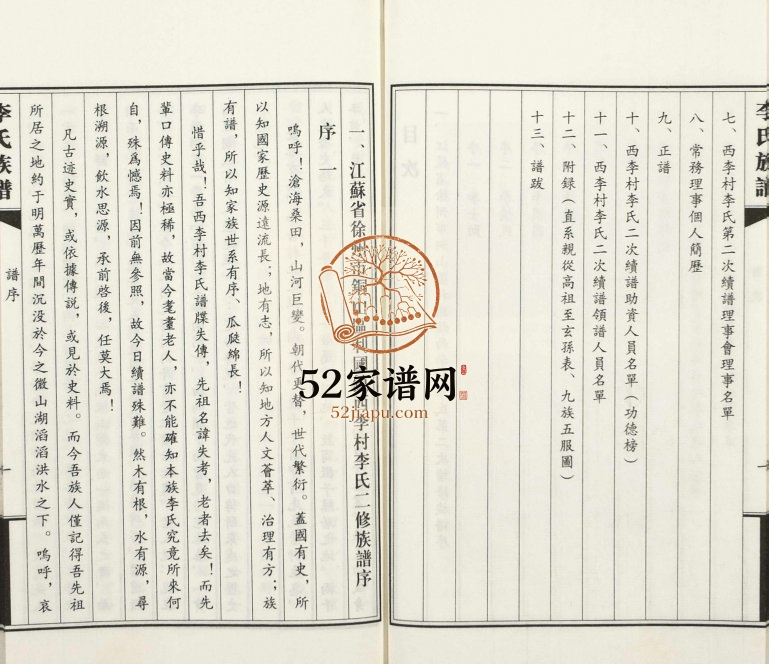 李氏族譜
七、西李村李氏第二次續譜理事會理事名單
八、常務理事個人簡歷
九、正譜
十、西李村李氏二次續譜助資人員名單（功德榜）
十一、西李村李氏二次續譜領譜人員名單
十二、附録（直系親從高祖至玄孫表、九族五服圖）
十三、譜跋
一、江蘇省徐州市銅山區利國 西李村李氏二修族譜序
序一
嗚呼！滄海桑田，山河巨變。朝代更替，世代繁衍。蓋國有史，所
以知國家歷史源遠流長；地有志，所以知地方人文薈萃、治理有方；族
有譜，所以知家族世系有序、瓜瓞綿長！
惜乎哉！吾西李村李氏譜牒失傳，先祖名諱失考，老者去矣！而先
輩口傳史料亦極稀，故當今耄耋老人，亦不能確知本族李氏究竟所來何
自，殊爲憾焉！因前無參照，故今日續譜殊難。然木有根，水有源，尋
根溯源，飲水思源，承前啓後，任莫大焉！
凡古迹史實，或依據傳説，或見於史料。而今吾族人僅記得吾先祖
所居之地約于明萬歷年間沉没於今之微山湖滔滔洪水之下。嗚呼，哀
李氏族譜
譜序
一
52家谱网
52jiapu.com